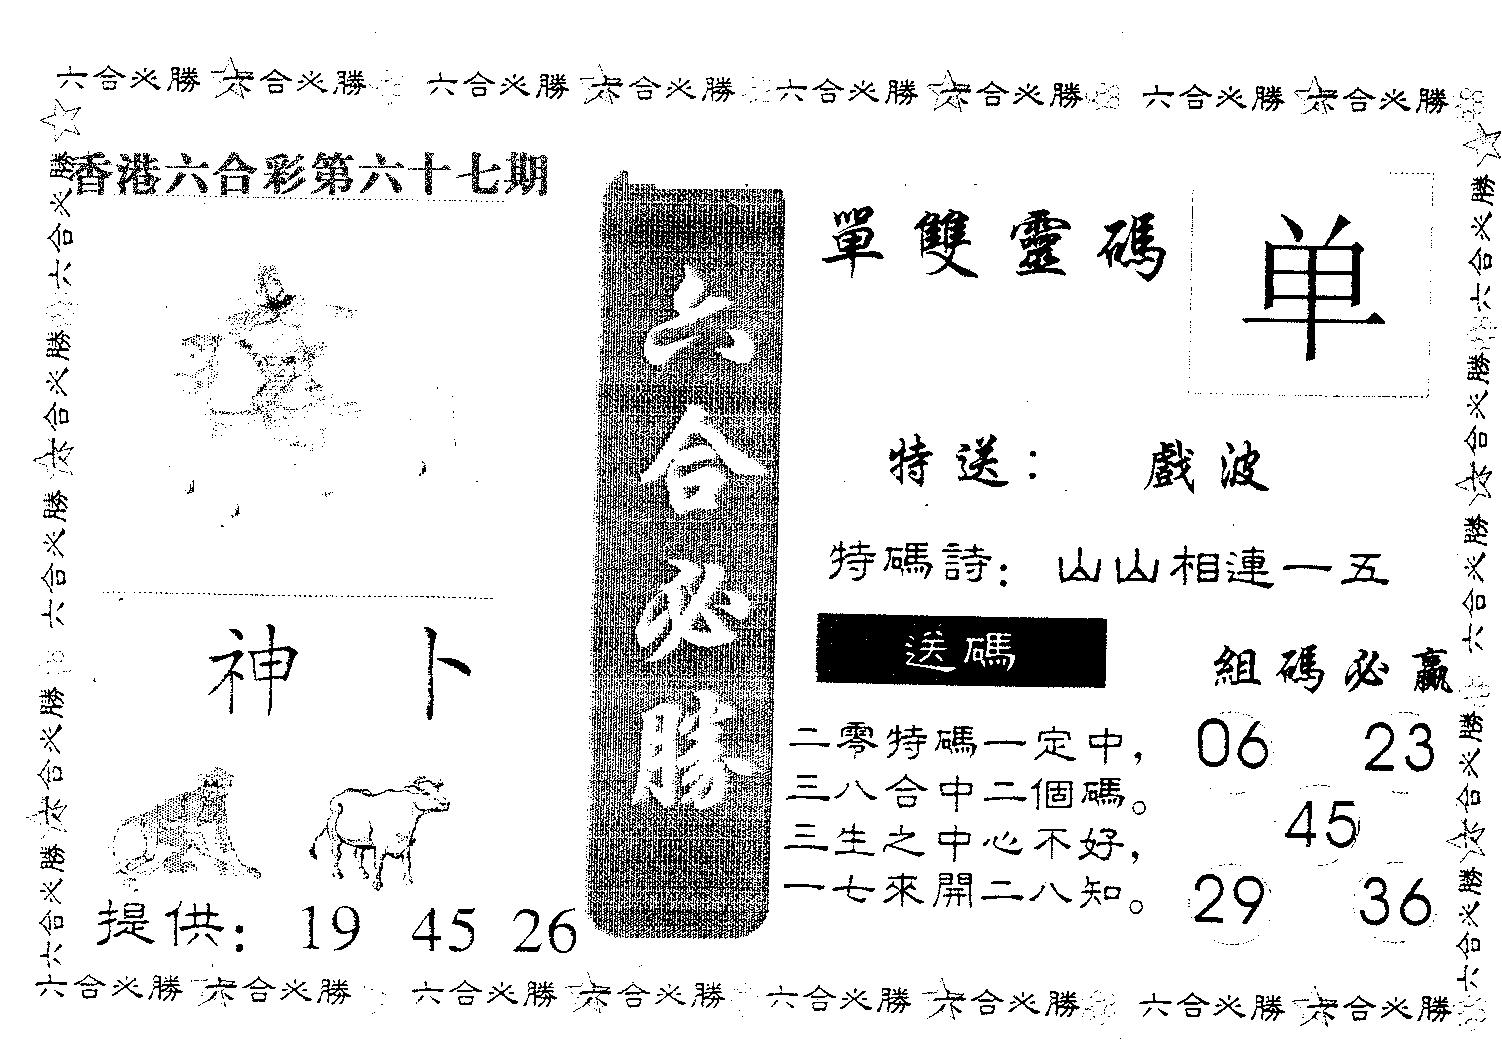 六合必勝 六合必勝 六合必勝 六合必勝 六合必勝 六合必勝 六合必勝 六合必勝
六合必勝 六合必勝 六合必勝 六合必勝 六合必勝
香港六合彩第六十七期
神卜
提供：19 45 26
六合必勝
單雙靈碼
单
特送：戲波
特碼詩：山山相連一五
送碼
二零特碼一定中，
三八合中二個碼。
三生之中心不好，
一七來開二八知。
組碼必贏
06 23
45
29 36
六合必勝 六合必勝 六合必勝 六合必勝 六合必勝
六合必勝 六合必勝 六合必勝 六合必勝 六合必勝 六合必勝 六合必勝 六合必勝